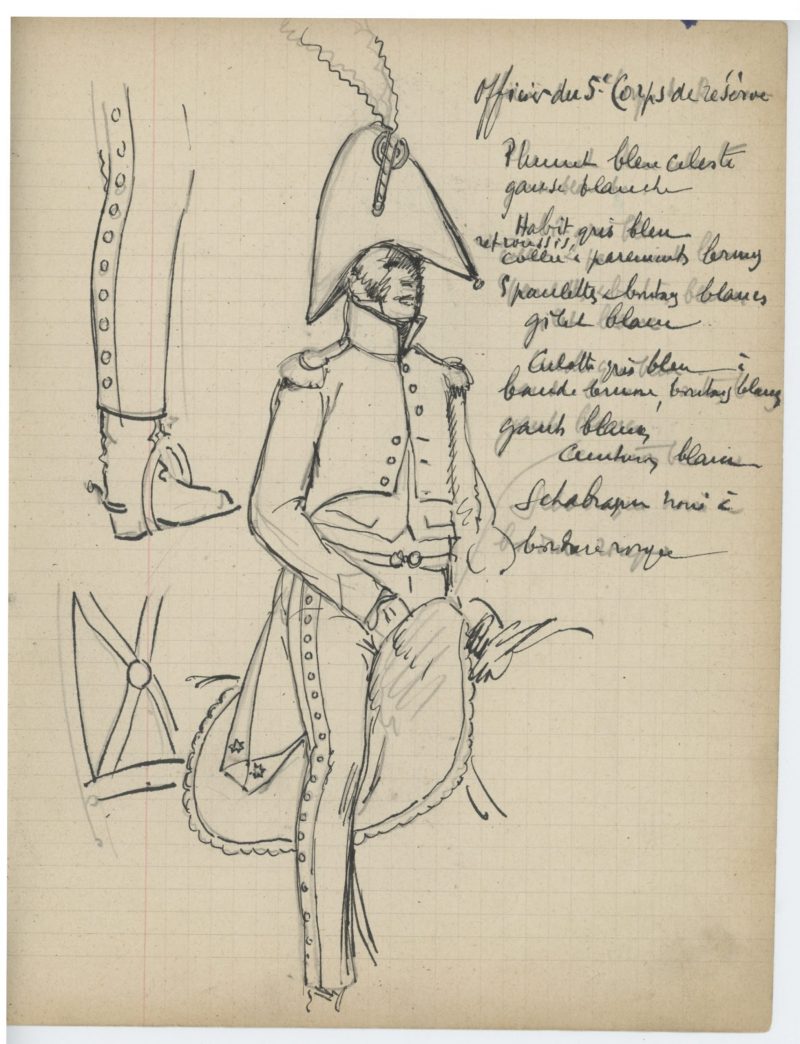 Officier du 5e Corps de réserve
Plumet bleu céleste
ganse blanche
Habit gris bleu
retroussis,
collet & parements bruns
Epaulettes & boutons blancs
gilet blanc
Culotte gris bleu à
bande brune, boutons blancs
gants blancs,
ceinturon blanc
Schabraque à
bordure rouge